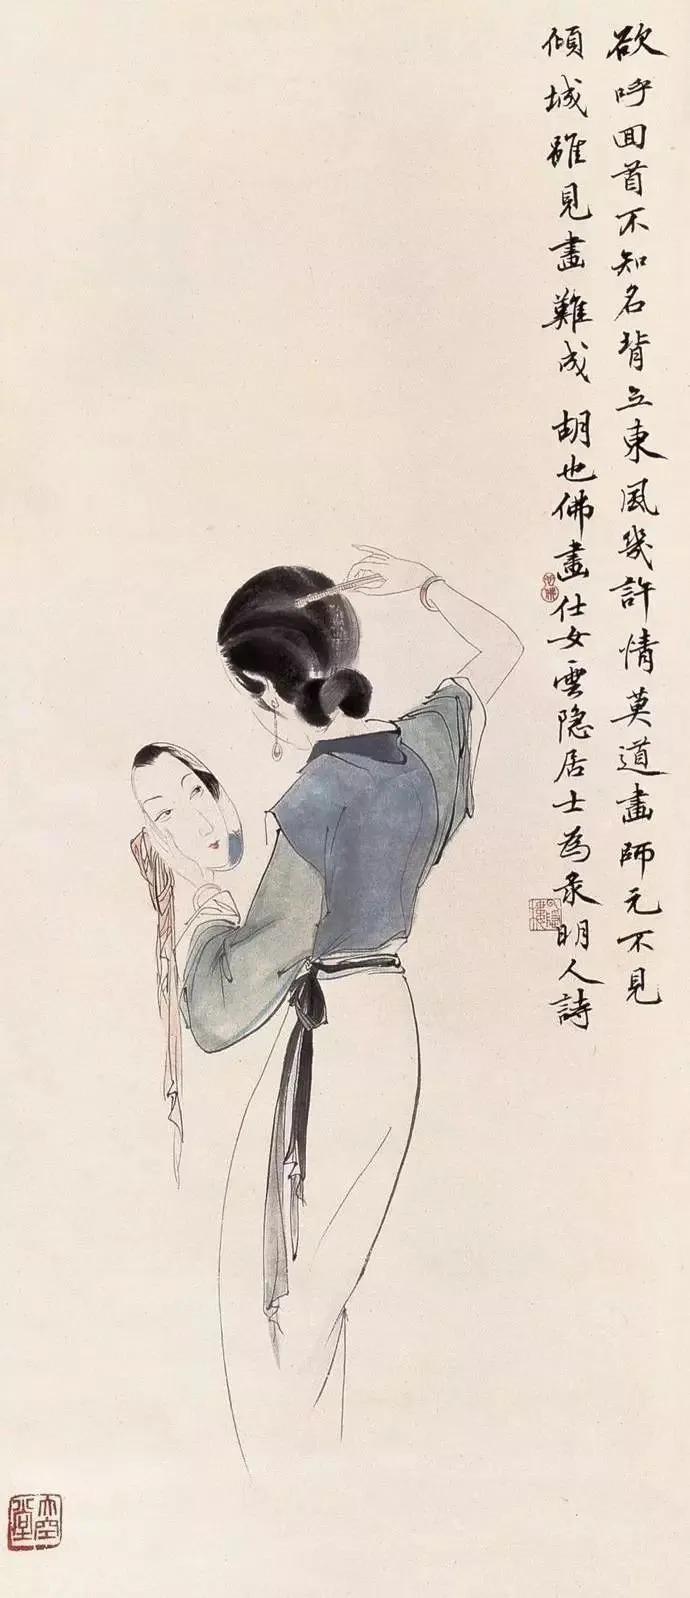 欲呼回首不知名背立東風幾許情莫道畫師元不見
傾城雖見畫難成 胡也佛畫仕女雲隐居士為彔明人詩
大空堂